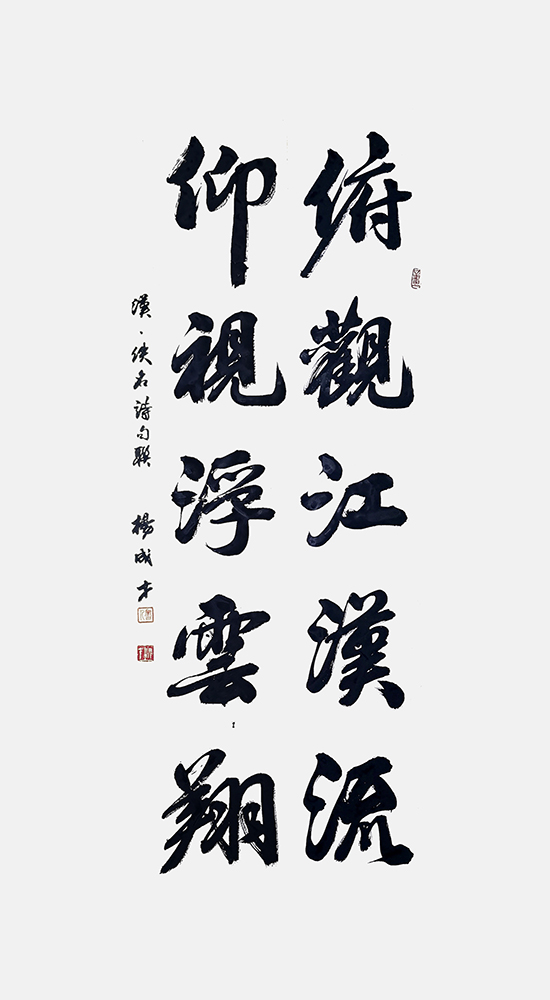 俯觀江漢流
仰視浮雲翔
漢、佚名詩句聯 楊成才